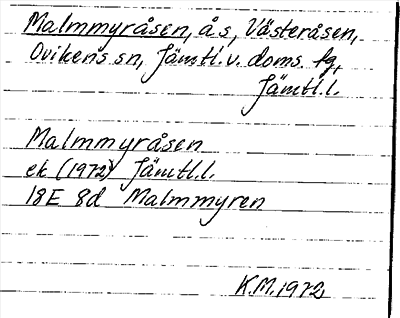 Malmmyråsen, ås, Västeråsen,
Ovikens sn, Jämtl. v. doms. fg,
Jämtl.l.
Malmmyråsen
ek (1972) Jämtl.l.
18E 8d Malmmyren
K.M. 1972